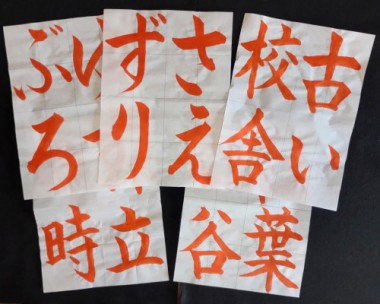 古い
校舎
さえ
ずり
ぶろ
葉
谷
立
時